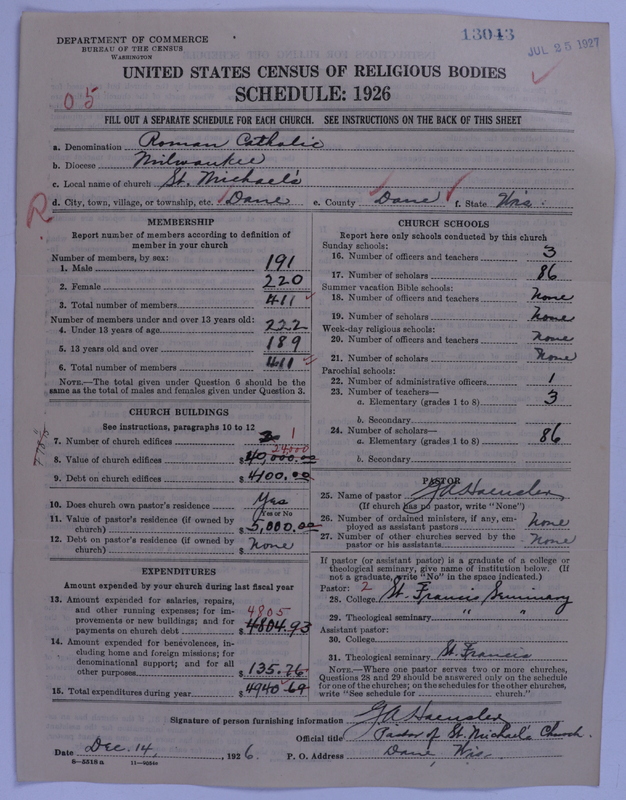 13043
JUL 25 1927
DEPARTMENT OF COMMERCE
BUREAU OF THE CENSUS
WASHINGTON
UNITED STATES CENSUS OF RELIGIOUS BODIES
SCHEDULE: 1926
05
FILL OUT A SEPARATE SCHEDULE FOR EACH CHURCH. SEE INSTRUCTIONS ON THE BACK OF THIS SHEET
a. Denomination Roman Catholic
b. Diocese Milwaukee
c. Local name of church St. Michael's
d. City, town, village, or township, etc. Dane e. County Dane f. State Wis.
R
MEMBERSHIP
Report number of members according to definition of
member in your church
Number of members, by sex:
1. Male 191
2. Female 220
3. Total number of members 411
Number of members under and over 13 years old:
4. Under 13 years of age 222
5. 13 years old and over 189
6. Total number of members 411
NOTE.—The total given under Question 6 should be the
same as the total of males and females given under Question 3.
CHURCH BUILDINGS
See instructions, paragraphs 10 to 12
7. Number of church edifices 1
24000
8. Value of church edifices $40,000.00
9. Debt on church edifices $4100.00
10. Does church own pastor's residence Yes
Yes or No
11. Value of pastor's residence (if owned by
church) $5,000.00
12. Debt on pastor's residence (if owned by
church) $ None
EXPENDITURES
Amount expended by your church during last fiscal year
13. Amount expended for salaries, repairs,
and other running expenses; for im-
provements or new buildings; and for
payments on church debt 4805 $4804.93
14. Amount expended for benevolences, in-
cluding home and foreign missions; for
denominational support; and for all
other purposes $135.76
15. Total expenditures during year $4940.69
CHURCH SCHOOLS
Report here only schools conducted by this church
Sunday schools:
16. Number of officers and teachers 3
17. Number of scholars 86
Summer vacation Bible schools:
18. Number of officers and teachers None
19. Number of scholars None
Week-day religious schools:
20. Number of officers and teachers None
21. Number of scholars None
Parochial schools:
22. Number of administrative officers 1
23. Number of teachers—
a. Elementary (grades 1 to 8) 3
b. Secondary
24. Number of scholars—
a. Elementary (grades 1 to 8) 86
b. Secondary
PASTOR
25. Name of pastor G A Haeusler
(If church has no pastor, write "None")
26. Number of ordained ministers, if any, em-
ployed as assistant pastors None
27. Number of other churches served by the
pastor or his assistants None
If pastor (or assistant pastor) is a graduate of a college or
theological seminary, give name of institution below. (If
not a graduate, write "No" in the space indicated.)
Pastor: 2
28. College St. Francis Seminary
29. Theological seminary " "
Assistant pastor:
30. College
31. Theological seminary St. Francis
NOTE.—Where one pastor serves two or more churches,
Questions 28 and 29 should be answered only on the schedule
for one of the churches; on the schedules for the other churches,
write "See schedule for church."
Signature of person furnishing information G A Haeusler
Official title Pastor of St. Michael's Church.
Date Dec. 14, 1926. P. O. Address Dane Wis.
8-5518 a